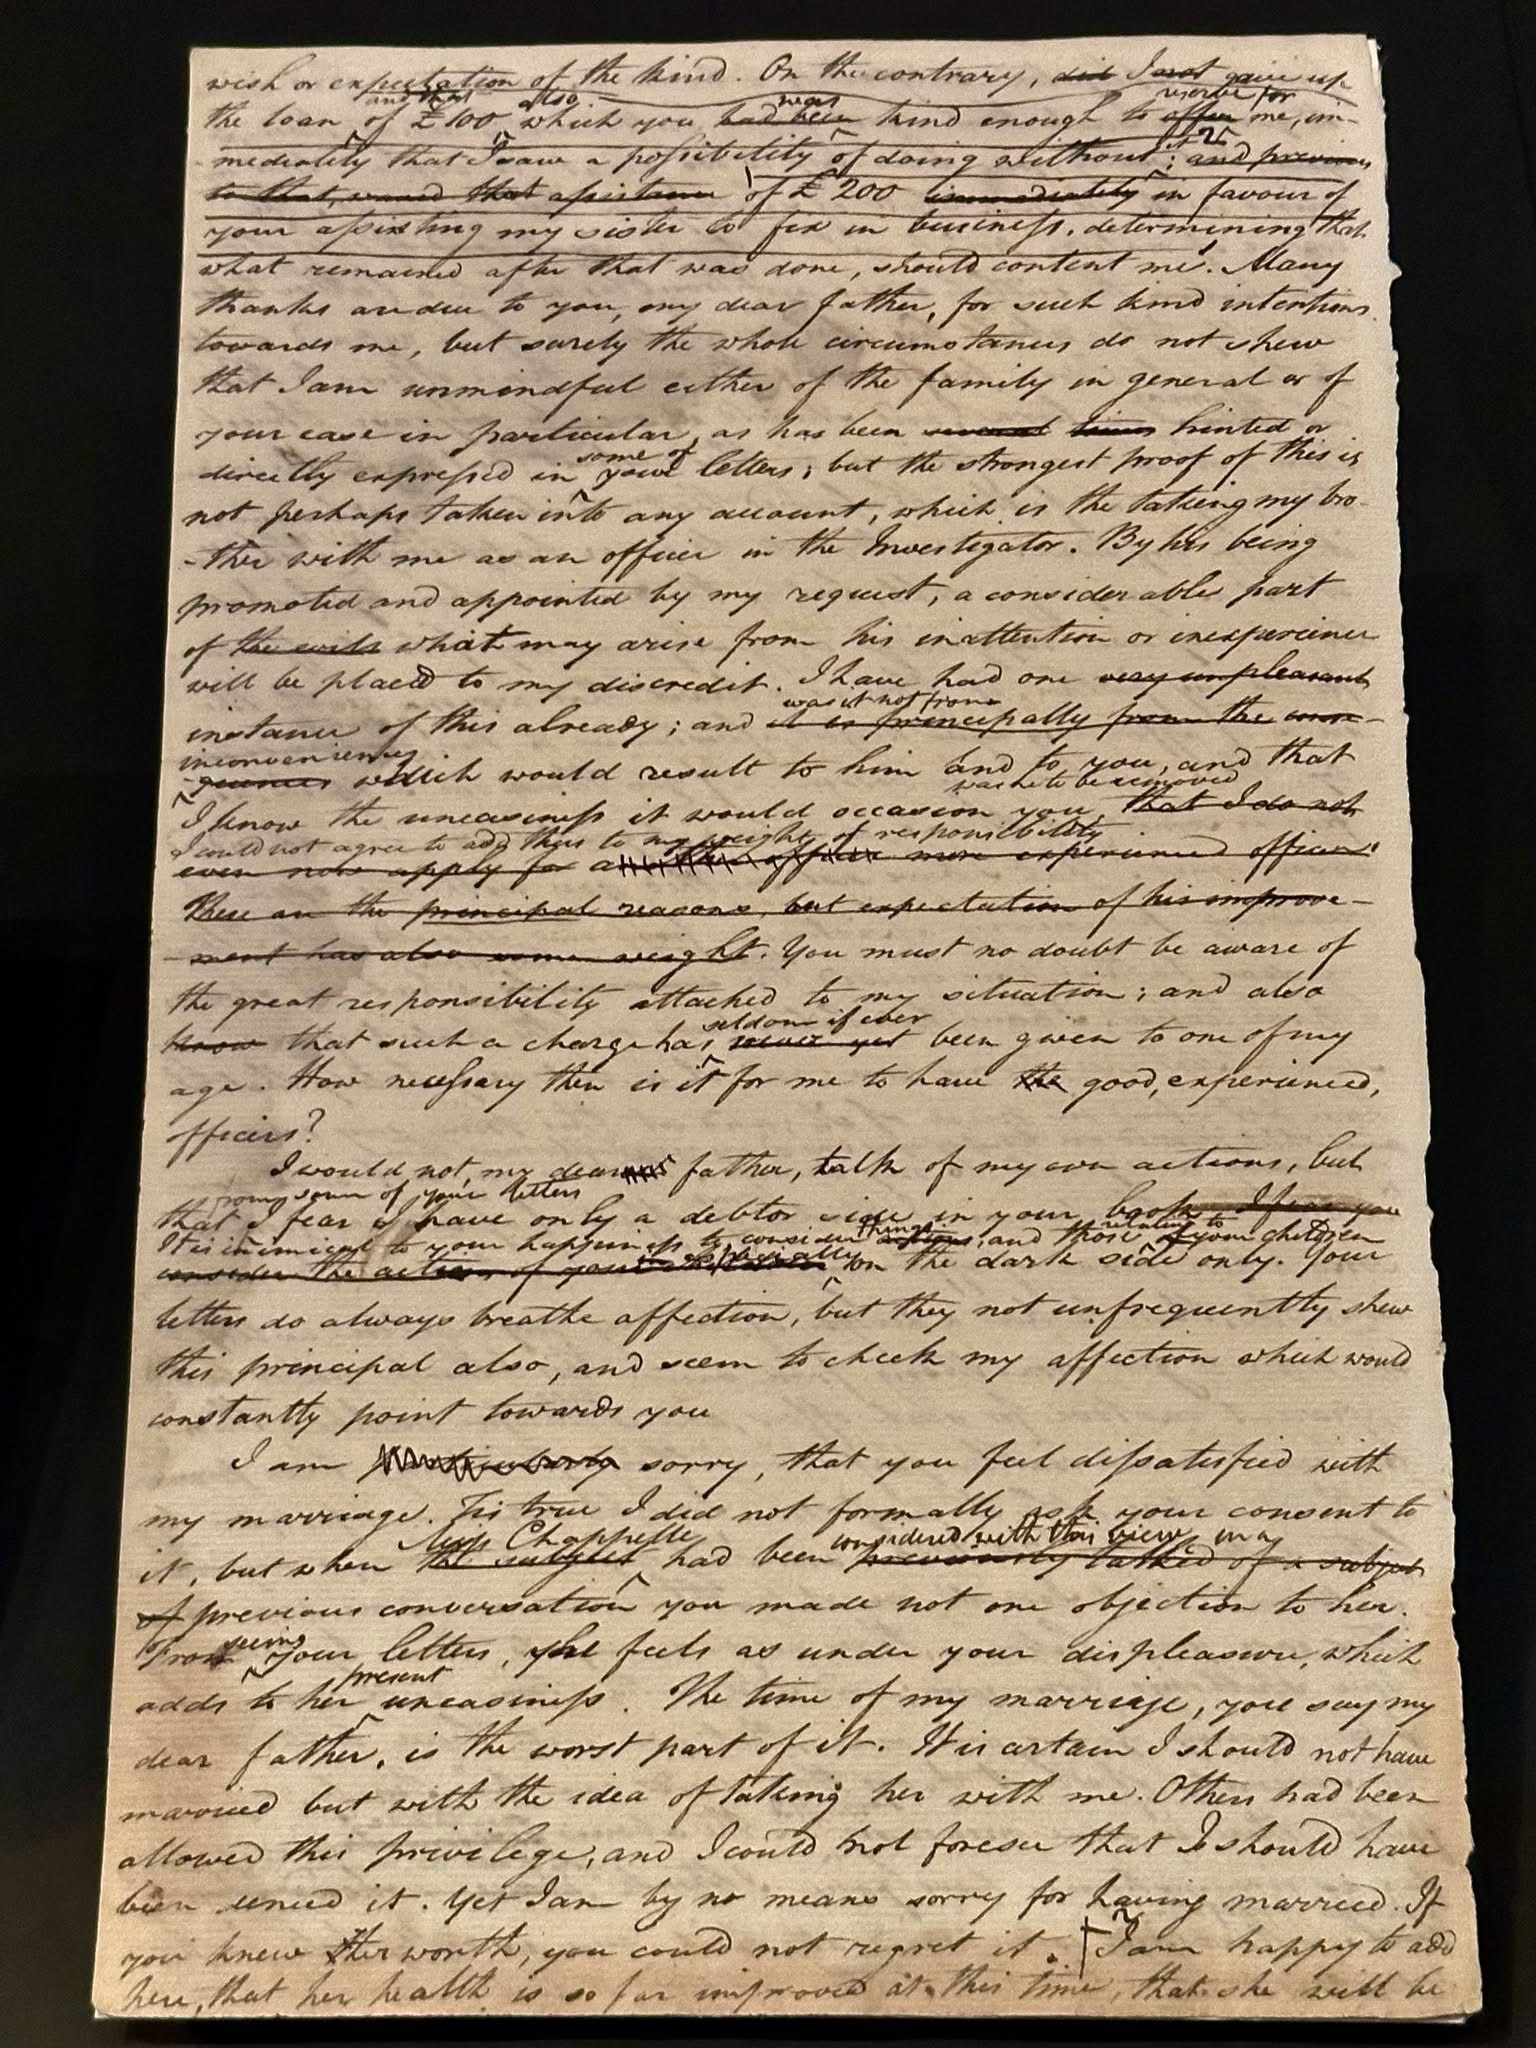 wish or expectation of the kind. On the contrary, did I not gave up
and that also was reserve for
the loan of £100 which you had been kind enough to offer me, im-
it
mediately that I saw a possibility of doing without; and previous
to that, waved that assistance of £200 immediately in favour of
your assisting my sister to fix in business, determining that
what remained after that was done, should content me. Many
thanks are due to you, my dear father, for such kind intentions
towards me, but surely the whole circumstances do not shew
that I am unmindful either of the family in general or of
your case in particular, as has been several times hinted or
some of
directly expressed in your letters; but the strongest proof of this is
not perhaps taken into any account, which is the taking my bro-
-ther with me as an officer in the Investigator. By his being
promoted and appointed by my request, a considerable part
of the evils what may arise from his inattention or inexperience
will be placed to my discredit. I have had one very unpleasant
was it not from
instance of this already; and it is principally from the conse-
inconveniences
-quences which would result to him and to you, and that
was he to be removed
I know the uneasiness it would occasion you, that I do not
I could not agree to add thus to my weight of responsibility
even now apply for a officer more experienced officer.
These are the principal reasons, but expectation of his improve-
-ment has also some weight. You must no doubt be aware of
the great responsibility attached to my situation; and also
seldom if ever
know that such a charge has never yet been given to one of my
age. How necessary then is it for me to have the good, experienced,
officers?
I would not, my dear father, talk of my own actions, but
from some of your letters
that I fear I have only a debtor side in your book. I fear you
It is inimical to your happiness to consider things, and those relating to your children
consider the actions of your children especially on the dark side only. Your
letters do always breathe affection, but they not unfrequently shew
this principal also, and seem to check my affection which would
constantly point towards you
I am particularly sorry, that you feel dissatisfied with
my marriage. Tis true I did not formally ask your consent to
Miss Chappelle considered with this view in a
it, but when the subject had been previously talked of a subject
of previous conversation you made not one objection to her.
seeing
From your letters, she feels as under your displeasure, which
present
adds to her uneasiness. The time of my marriage, you say my
dear father, is the worst part of it. It is certain I should not have
married but with the idea of taking her with me. Others had been
allowed this privilege, and I could not foresee that I should have
been denied it. Yet I am by no means sorry for having married. If
you knew her worth, you could not regret it. I am happy to add
here, that her health is so far improved at this time, that she will be